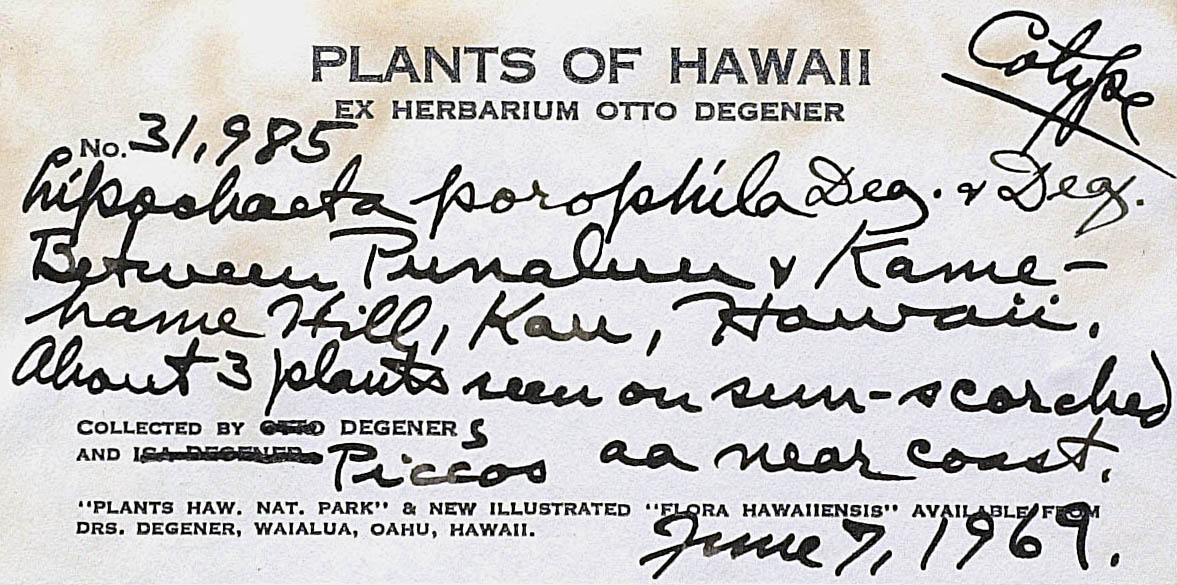 Cotype
PLANTS OF HAWAII
EX HERBARIUM OTTO DEGENER
No. 31,985
Lipochaeta porophila Deg. & Deg.
Between Punaluu & Kame-
hame Hill, Kau, Hawaii.
About 3 plants seen on sun-scorched
COLLECTED BY OTTO DEGENERS
AND ISA DEGENER Piccos aa near coast.
"PLANTS HAW. NAT. PARK" & NEW ILLUSTRATED "FLORA HAWAIIENSIS" AVAILABLE FROM
DRS. DEGENER, WAIALUA, OAHU, HAWAII.
June 7, 1969.